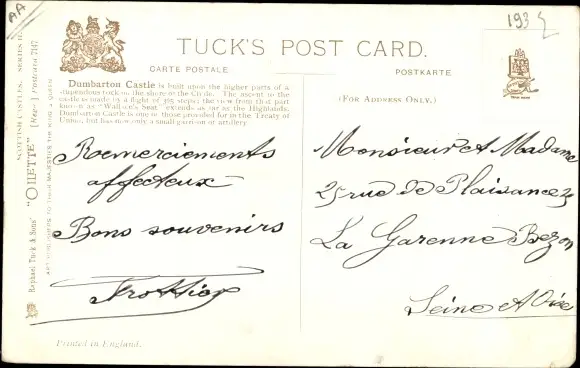 AA
193
TUCK'S POST CARD.
CARTE POSTALE
POSTKARTE
(FOR ADDRESS ONLY.)
Dumbarton Castle is built upon the higher parts of a
stupendous rock on the shore of the Clyde. The ascent to the
castle is made by a flight of 365 steps; the view from that part
known as "Wallace's Seat," extends as far as the Highlands.
Dumbarton Castle is one of those provided for in the Treaty of
Union, but has now only a small garrison of artillery.
Remerciements
affecteux
Bons souvenirs
Monsieur et Madame
25 rue de Plaisance 25
La Garenne Bezon
Seine et Oise
Raphael Tuck & Sons' "OILETTE" [Reg.] Postcard 7147
SCOTTISH CASTLES. SERIES II.
ART PUBLISHERS TO THEIR MAJESTIES THE KING & QUEEN
Printed in England.